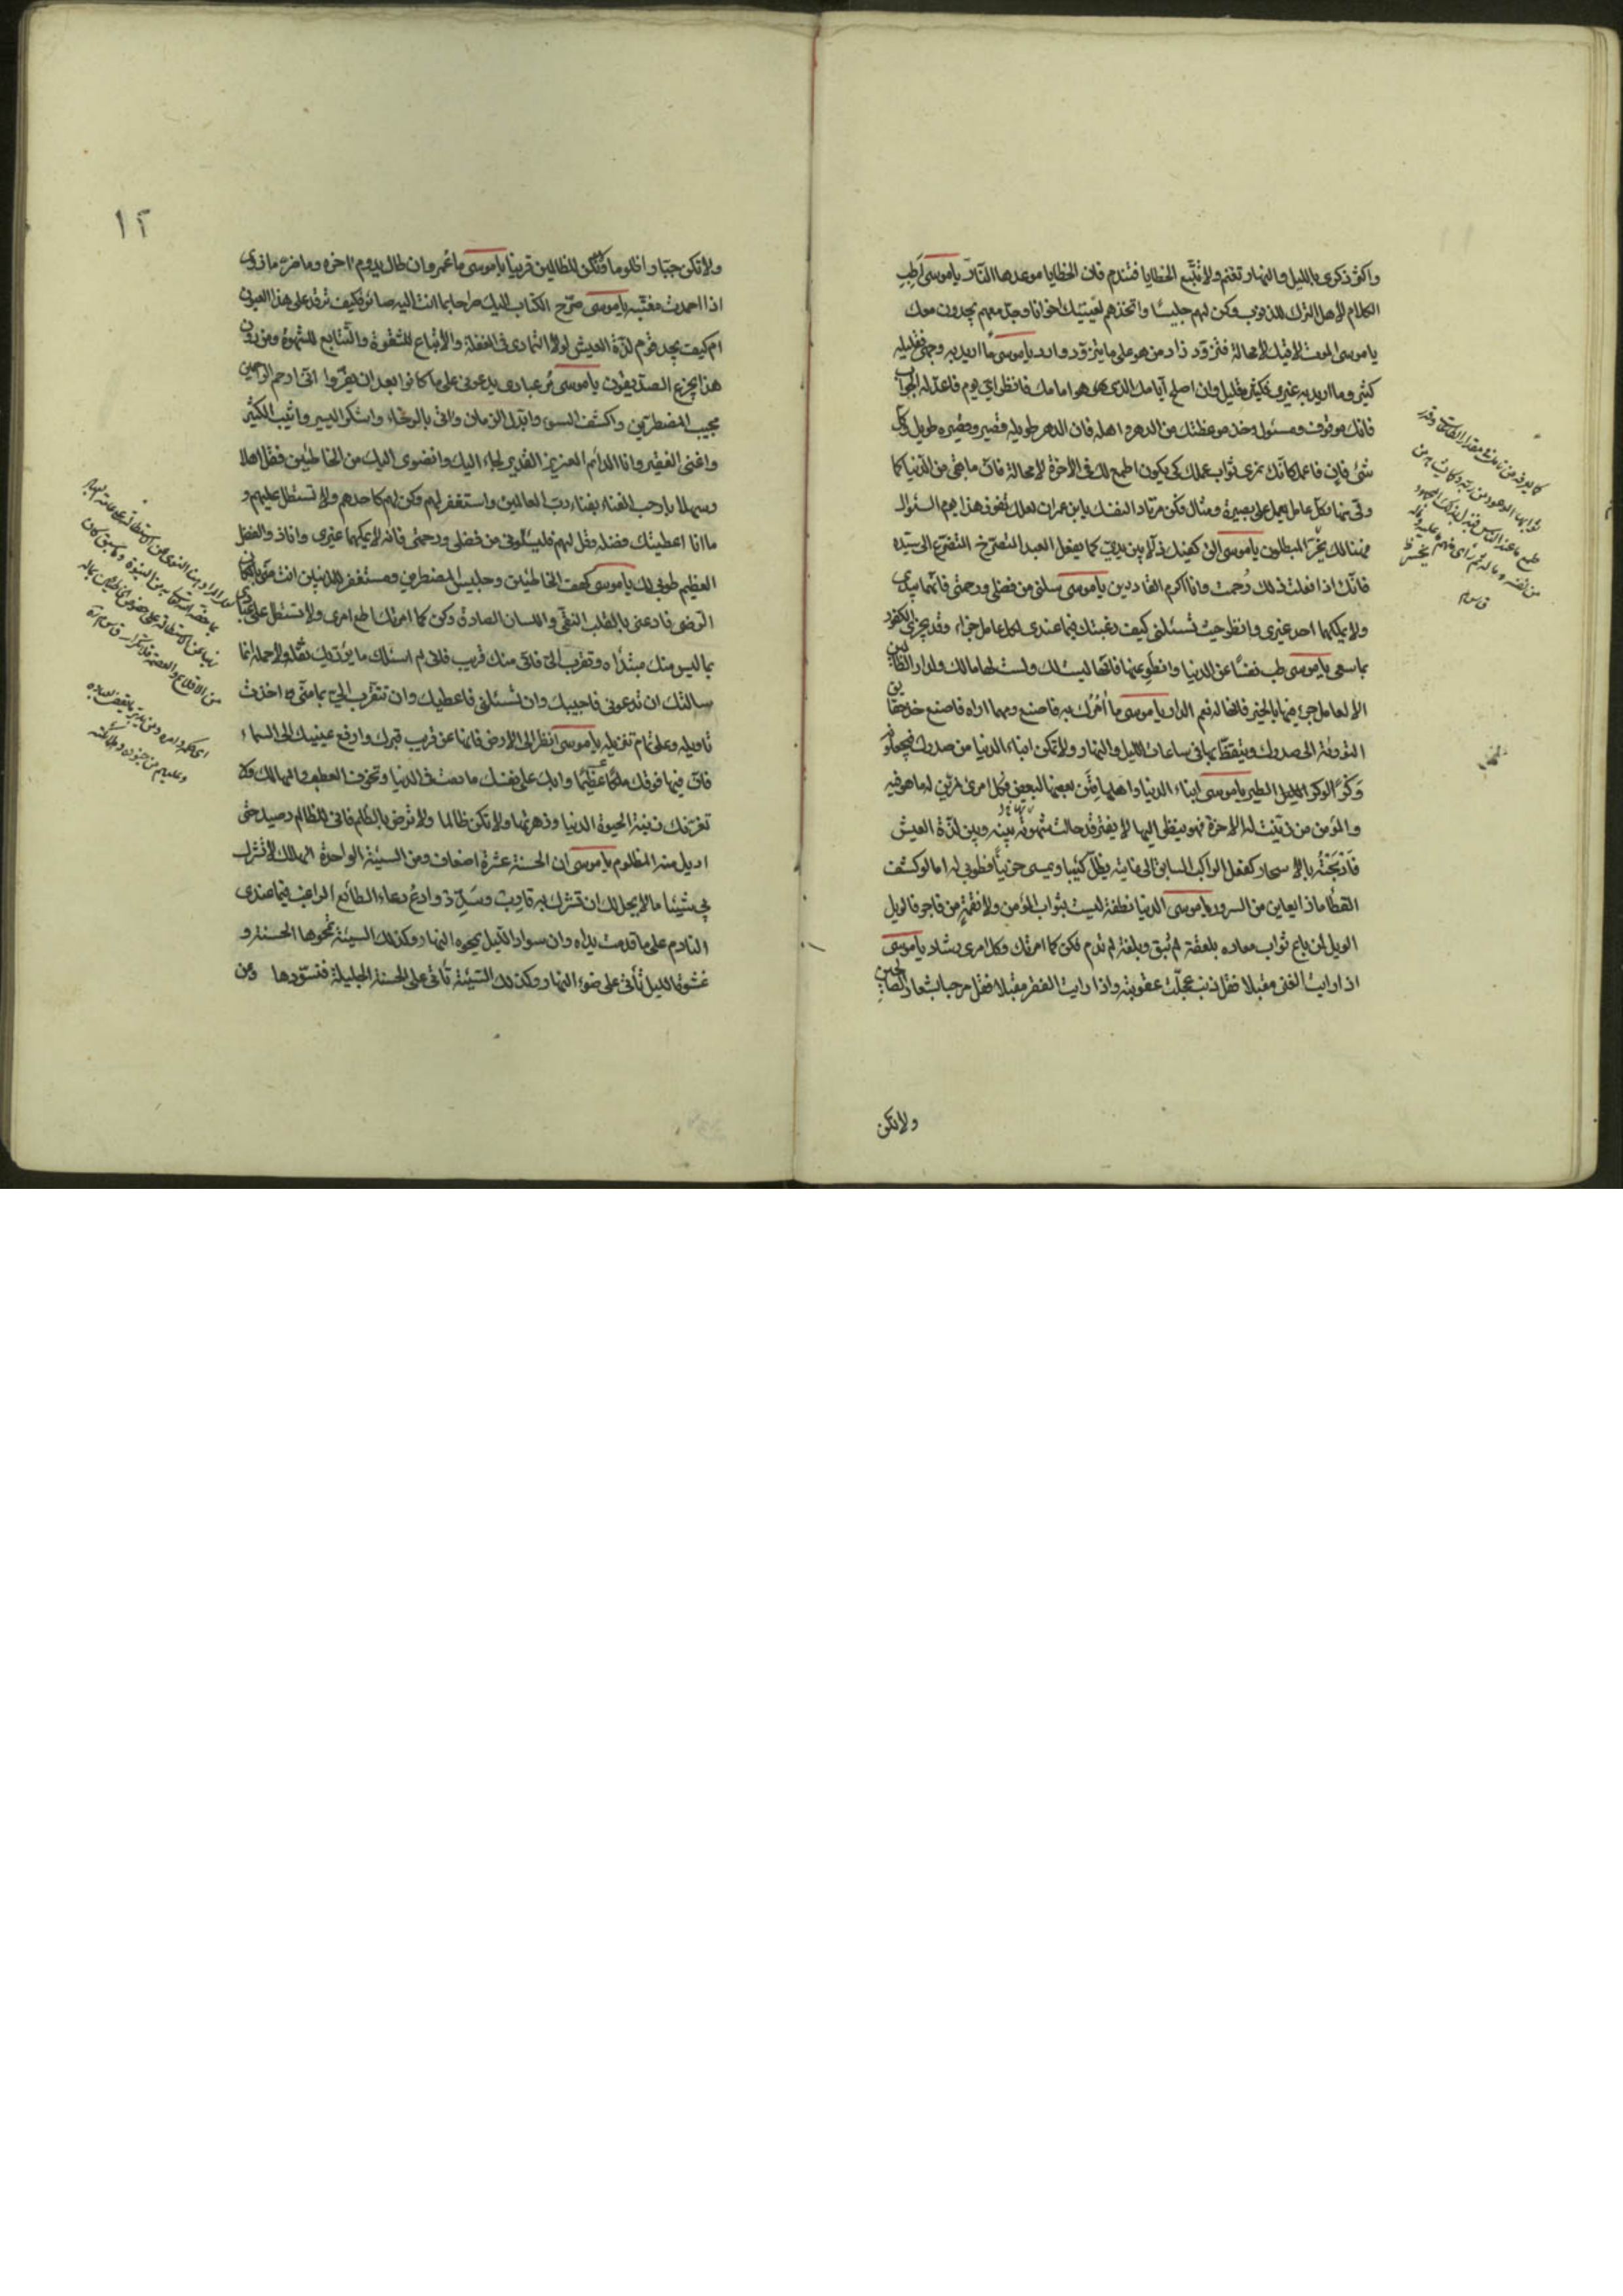 واكثر ذكري بالليل والنهار تغنم ولا تتبع الخطايا فتندم فان الخطايا موعدها النار يا موسى اطب
الكلام لاهل الترك للذنوب وكن لهم جليسا واتخذهم لغيبك اخوانا وجد معهم يجدون معك
يا موسى الموت لاقيك لا محالة فتزود زاد من هو على ما يتزود وارد يا موسى ما اريد به وجهي فقليله
كثير وما اريد به غيري فكثيره قليل وان اصلح ايامك الذي هو امامك فانظر اي يوم فاعد له الجواب
فانك موقوف ومسئول وخذ موعظتك من الدهر واهله فان الدهر طويله قصير وقصيره طويل وكل
شئ فان فاعمل كانك ترى ثواب عملك كي يكون اطمع لك في الاخرة لا محالة فان ما بقي من الدنيا كما
ولى منها وكل عامل يعمل على بصيرة ومثال فكن مرتادا لنفسك يا بن عمران لعلك تفوز غدا يوم السؤال
فهنالك يخسر المبطلون يا موسى الق كفيك ذلا بين يدي كما يفعل العبد المتصرخ المتضرع الى سيده
فانك اذا فعلت ذلك رحمت وانا اكرم القادرين يا موسى سلني من فضلي ورحمتي فانهما بيدي
ولا يملكهما احد غيري وانظر حيث تسئلني كيف رغبتك فيما عندي لكل عامل جزاء وقد يجزى الكفور
بما سعى يا موسى طب نفسا عن الدنيا وانطو عنها فانها ليست لك ولست لها مالك ولدار الظالمين
الا لعامل جرى فيها بالخير فانها له نعم الدار يا موسى ما آمرك به فاصنع ومهما اراه فاصنع خذ حقايق
التورية الى صدرك وتيقظ بها في ساعات الليل والنهار ولا تمكن ابناء الدنيا من صدرك فيجعلونه
وكرا كوكر الطير يا موسى ابناء الدنيا واهلها فتن بعضها لبعض فكل امرئ مزين له ما هو فيه
والمؤمن من زينت له الاخرة فهو ينظر اليها لا يفتر قد حالت شهوتها بينه وبين لذة العيش
فادلجته بالاسحار كفعل الراكب السابق الى غايته يظل كئيبا ويمسي حزينا فطوبى له اما لو كشف
الغطاء ماذا يعاين من السرور يا موسى الدنيا نطفة ليست بثواب للمؤمن ولا نقمة من فاجر فالويل
الويل لمن باع ثواب معاده بلعقة لم تبق وبلغة لم تدم فكن كما امرتك وكل امري رشاد يا موسى
اذا رايت الغنى مقبلا فقل ذنب عجلت عقوبته واذا رايت الفقر مقبلا فقل مرحبا بشعار الصالحين
ولا تكن
١٢
ولا تكن جبارا ظلوما ولا تكن للظالمين قرينا يا موسى ما عمر وان طال يدوم اخره وما ضرك ما زوي
اذا احمدت مغبته يا موسى صرح الكتاب اليك صراحا بما انت اليه صائر فكيف ترقد على هذا العيون
ام كيف يجد قوم لذة العيش لولا التمادي في الغفلة والاتباع للشقوة والتتابع للشهوة ومن دون
هذا يجزع الصديقون يا موسى مر عبادي يدعوني على ما كانوا بعد ان يقروا اني ارحم الراحمين
مجيب المضطرين واكشف السوء وابدل الزمان واتى بالرخاء واشكر اليسير واثيب الكثير
واغني الفقير وانا الدائم العزيز القدير لجاء اليك وانضوى اليك من الخاطئين فقل اهلا
وسهلا يا رحب الفناء بفناء رب العالمين واستغفر لهم وكن لهم كاحدهم ولا تستطل عليهم و
ما انا اعطيتك فضله وقل لهم فليسئلوني من فضلي ورحمتي فانه لا يملكها غيري وانا ذو الفضل
العظيم طوبى لك يا موسى كهف الخاطئين وجليس المضطرين ومستغفر للمذنبين انت مني بالمكان
الرضي فادعني بالقلب النقي واللسان الصادق وكن كما امرتك اطع امري ولا تستطل على عبادي
بما ليس منك مبتداه وتقرب الي فاني منك قريب فاني لم اسئلك ما يؤذيك ثقله ولا حمله انما
سالتك ان تدعوني فاجيبك وان تسئلني فاعطيك وان تتقرب الي بما مني اخذت
تاويله وعلي تمام تنزيله يا موسى انظر الى الارض فانها عن قريب قبرك وارفع عينيك الى السماء
فان فيها فوقك ملكا عظيما وابك على نفسك ما دمت في الدنيا وتخوف العطب والمهالك ولا
تغرنك زينة الحيوة الدنيا وزهرتها ولا تكن ظالما ولا ترض بالظلم فاني للظالم رصيد حتى
اديل منه المظلوم يا موسى ان الحسنة عشرة اضعاف ومن السيئة الواحدة الهلاك لا تشرك
بي شيئا ما لا يحل لك ان تشرك به قارب وسدد وادع دعاء الطائع الراغب فيما عندي
النادم على ما قدمت يداه وان سواد الليل يمحوه النهار وكذلك السيئة تمحوها الحسنة و
عشوة الليل تأتي على ضوء النهار وكذلك السيئة تأتي على الحسنة الجليلة فتسودها ومن